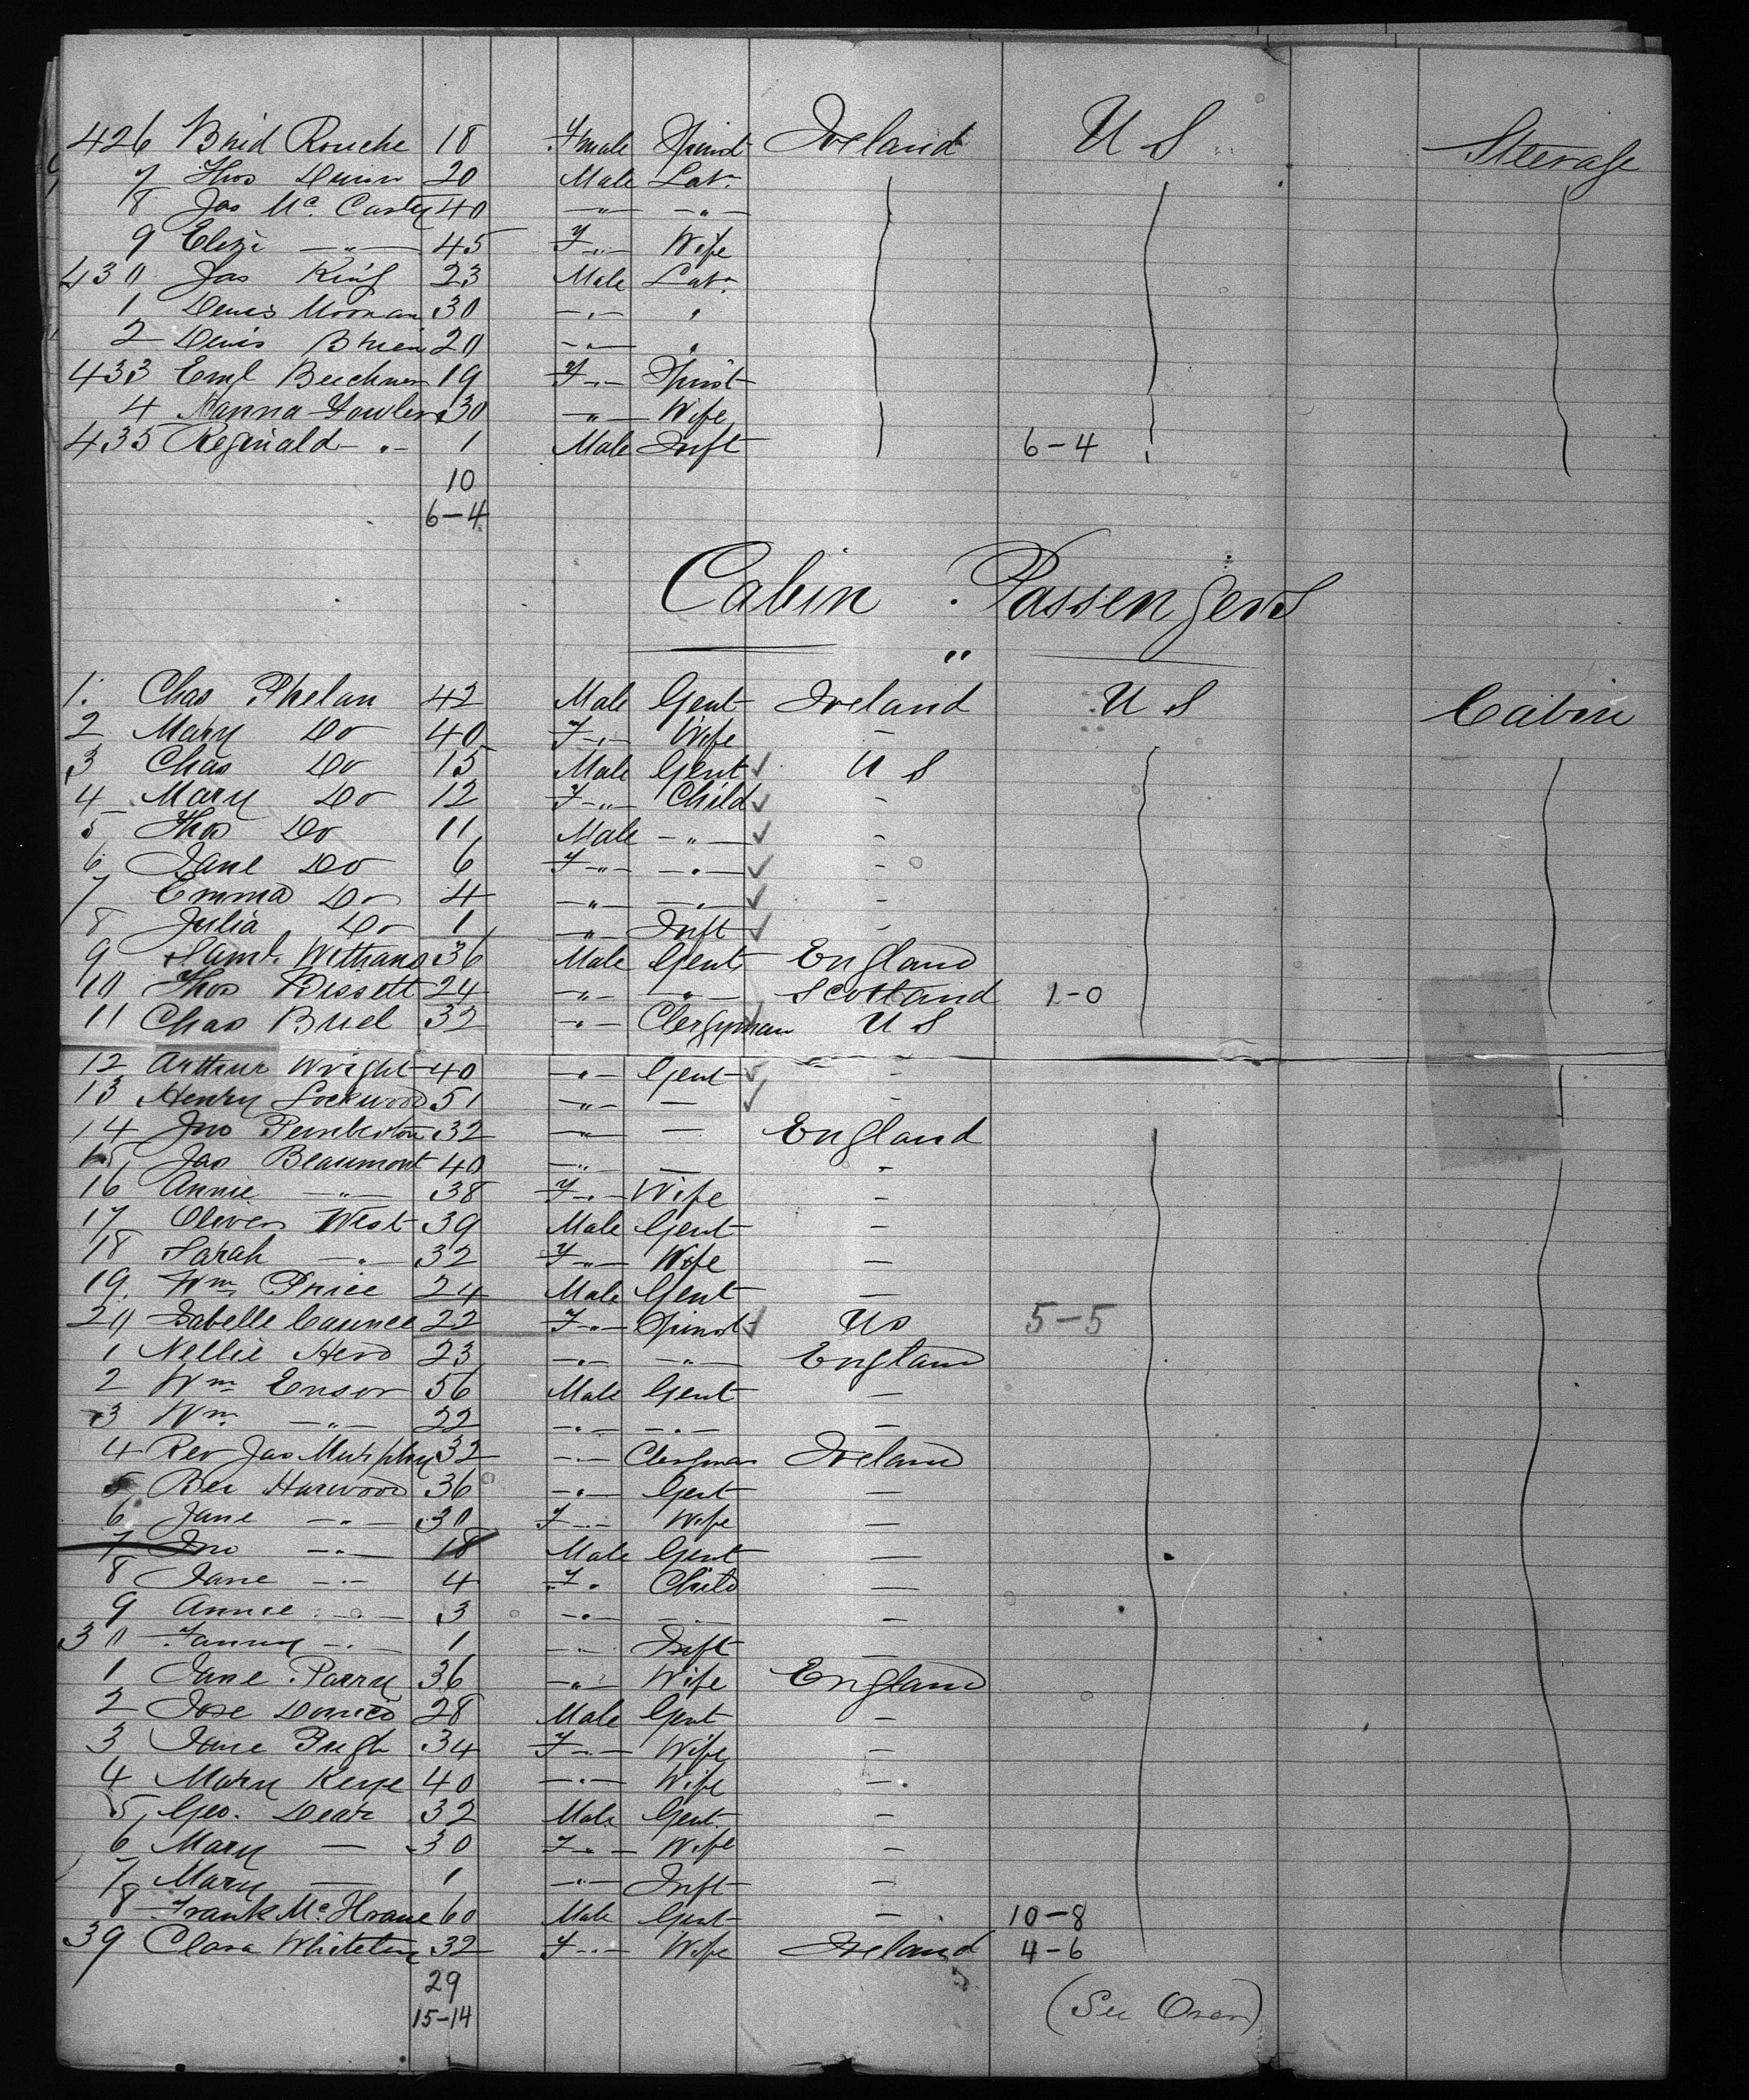 426 Brid Rouche 18 Fmale Spinst Ireland U S Steerage
7 Thos Dunn 20 Male Labr
8 Jas Mc. Carty 40 —"— —"—
9 Eliz —"— 45 F—"— Wife
430 Jas King 23 Male Labr
1 Denis Moonan 30 —"— "
2 Denis Brien 20 —"— "
433 19 F—"— Spinst
4 Hanna Fowler 30 —"— Wife
435 Reginald —"— 1 Male Inft 6-4
10
6-4
Cabin Passengers
"
1. Chas Phelan 42 Male Gent Ireland U S Cabin
2 Mary Do 40 F—"— Wife –
3 Chas Do 15 Male Gent ✓ U S
4 Mary Do 12 F—"— Child ✓ –
5 Thos Do 11 Male —"— ✓ –
6 Jane Do 6 F—"— —"— ✓ –
7 Emma Do 4 —"— —"— ✓ –
8 Julia Do 1 —"— Inft ✓ –
9 Saml. 36 Male Gent England
10 Thos Bissett 24 —"— —"— Scotland 1-0
11 Chas Buel 32 —"— Clergyman ✓ U S
12 Arthur Wright 40 —"— Gent ✓ –
13 Henry Lockwood 51 —"— — ✓ –
14 Jno Pemberton 32 —"— — England
15 Jas Beaumont 40 —"— — –
16 Annie —"— 38 F—"— Wife –
17 Oliver West 39 Male Gent –
18 Sarah —"— 32 F—"— Wife –
19. Wm Price 24 Male Gent —
20 Isabelle Caunce 22 F—"— Spinst ✓ US 5-5
1 Nellie Herd 23 —"— —"— England
2 Wm Ensor 56 Male Gent —
3 Wm. —"— 22 —"— —"— —
4 Rev Jas Murphy 32 —"— Clergyman Ireland
5 Ben Harwood 36 —"— Gent —
6 Jane —"— 30 F—"— Wife —
7 Jno —"— 18 Male Gent —
8 Jane —"— 4 F " Child —
9 Annie —"— 3 —"— —"— —
30 Fanny —"— 1 —"— Inft —
1 Jane Parry 36 —"— Wife England
2 Jose 28 Male Gent –
3 Jane Pugh 34 F—"— Wife –
4 Mary Keye 40 —"— Wife –
5 Geo. Dear 32 Male Gent –
6 Mary — 30 F—"— Wife –
7 Mary — 1 —"— Inft –
8 Frank Mc. 60 Male Gent – 10-8
39 Clara 32 F—"— Wife Ireland 4-6
29
15-14
(See Over)